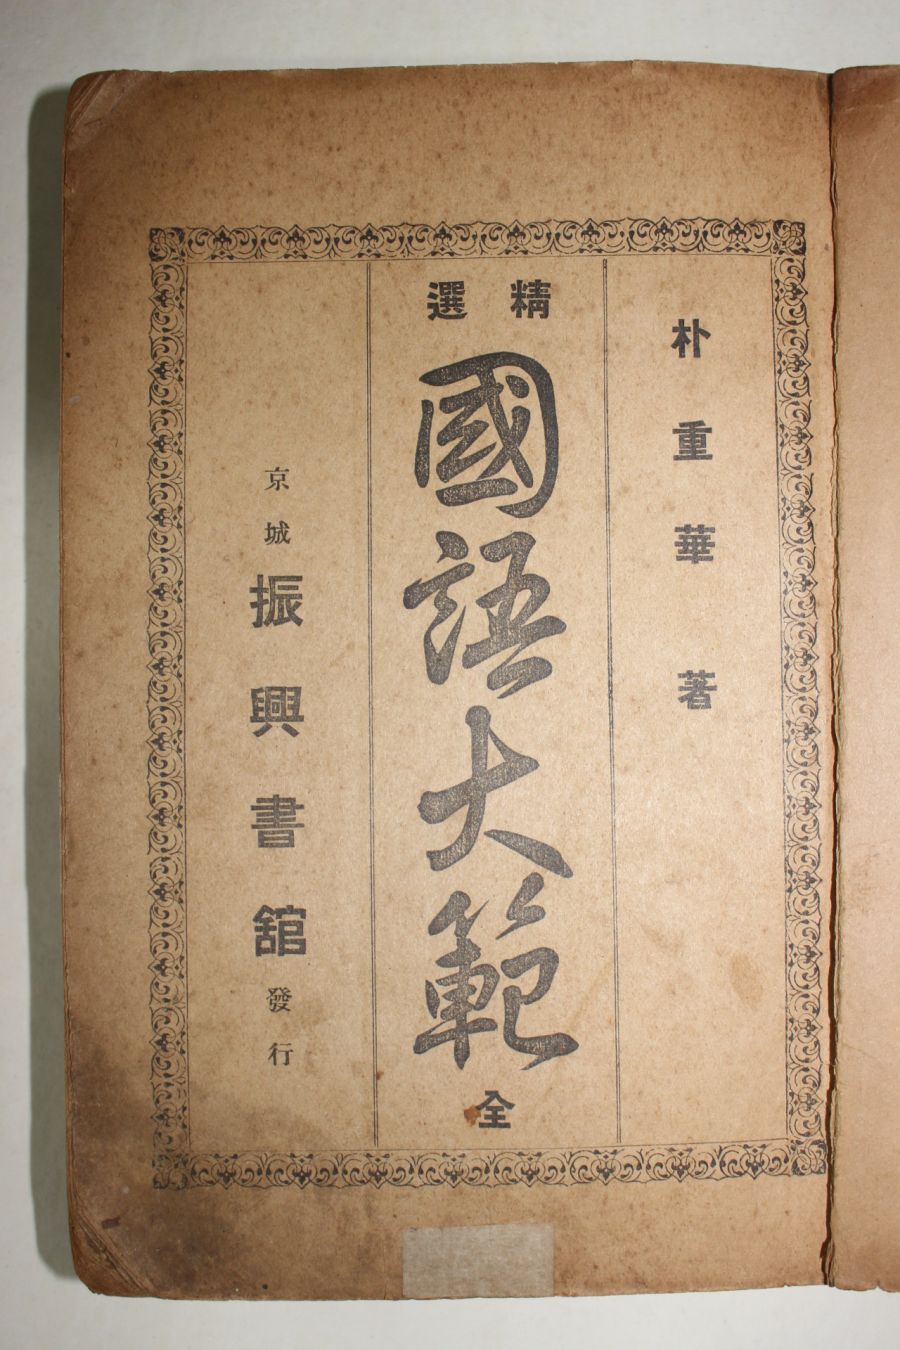 朴重華著
精選
國語大範
全
京城振興書舘發行